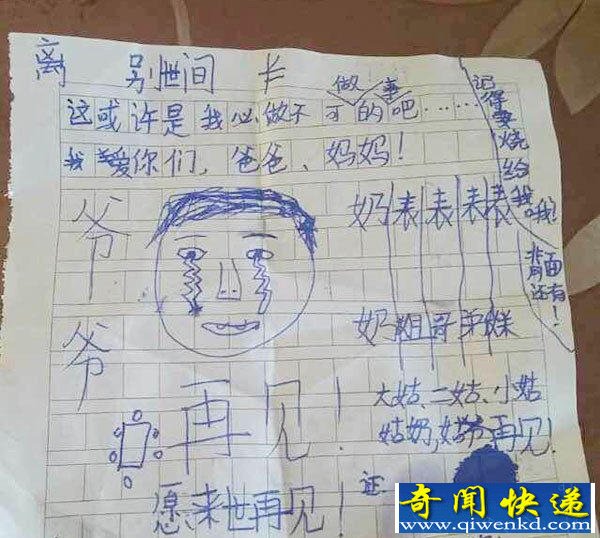 离 别世间 长
做 事
这或许是我必做不可的吧……
我爱你们，爸爸、妈妈！
记得要烧给我哦！
背面还有！
爷爷
奶 表 表 表 表
奶 姐 哥 弟 妹
再见！
大姑、二姑、小姑
姑奶，姑爷再见！
愿来世再见！
证
奇闻快递
www.qiwenkd.com